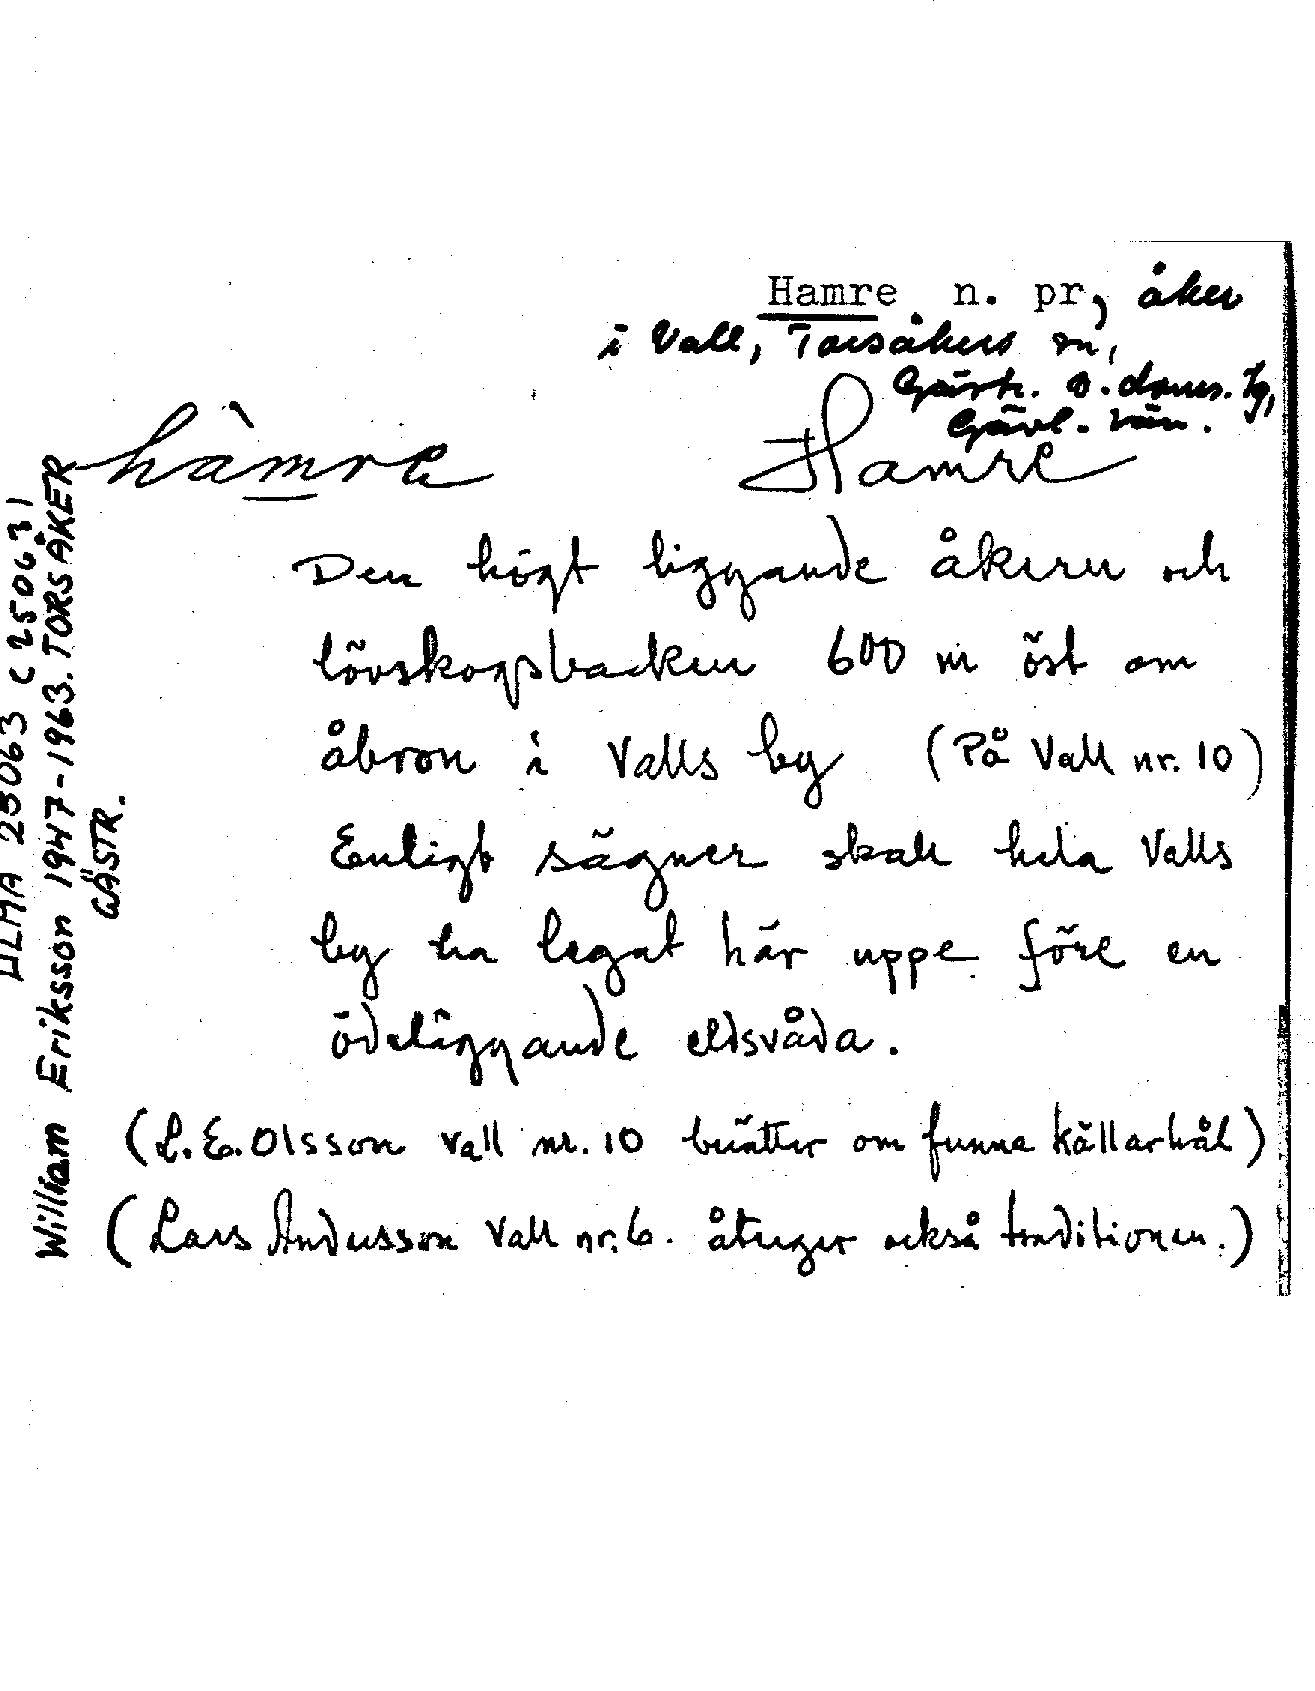 Hamre n. pr, åker
i Vall, Torsåkers sn,
Gästr. ö. doms. tg,
Gävl. län.
hàmre Hamre
Den högt liggande åkern och
lövskogsbacken 600 m öst om
åbron i Valls by (På Vall nr. 10)
Enligt sägner skall hela Valls
by ha legat här uppe före en
ödeläggande eldsvåda.
(L.E. Olsson Vall nr. 10 berätter om funna källarhål)
(Lars Andersson Vall nr. 6. återger också traditionen.)
ULMA 25063 (25063)
William Eriksson 1947-1963. TORSÅKER
GÄSTR.